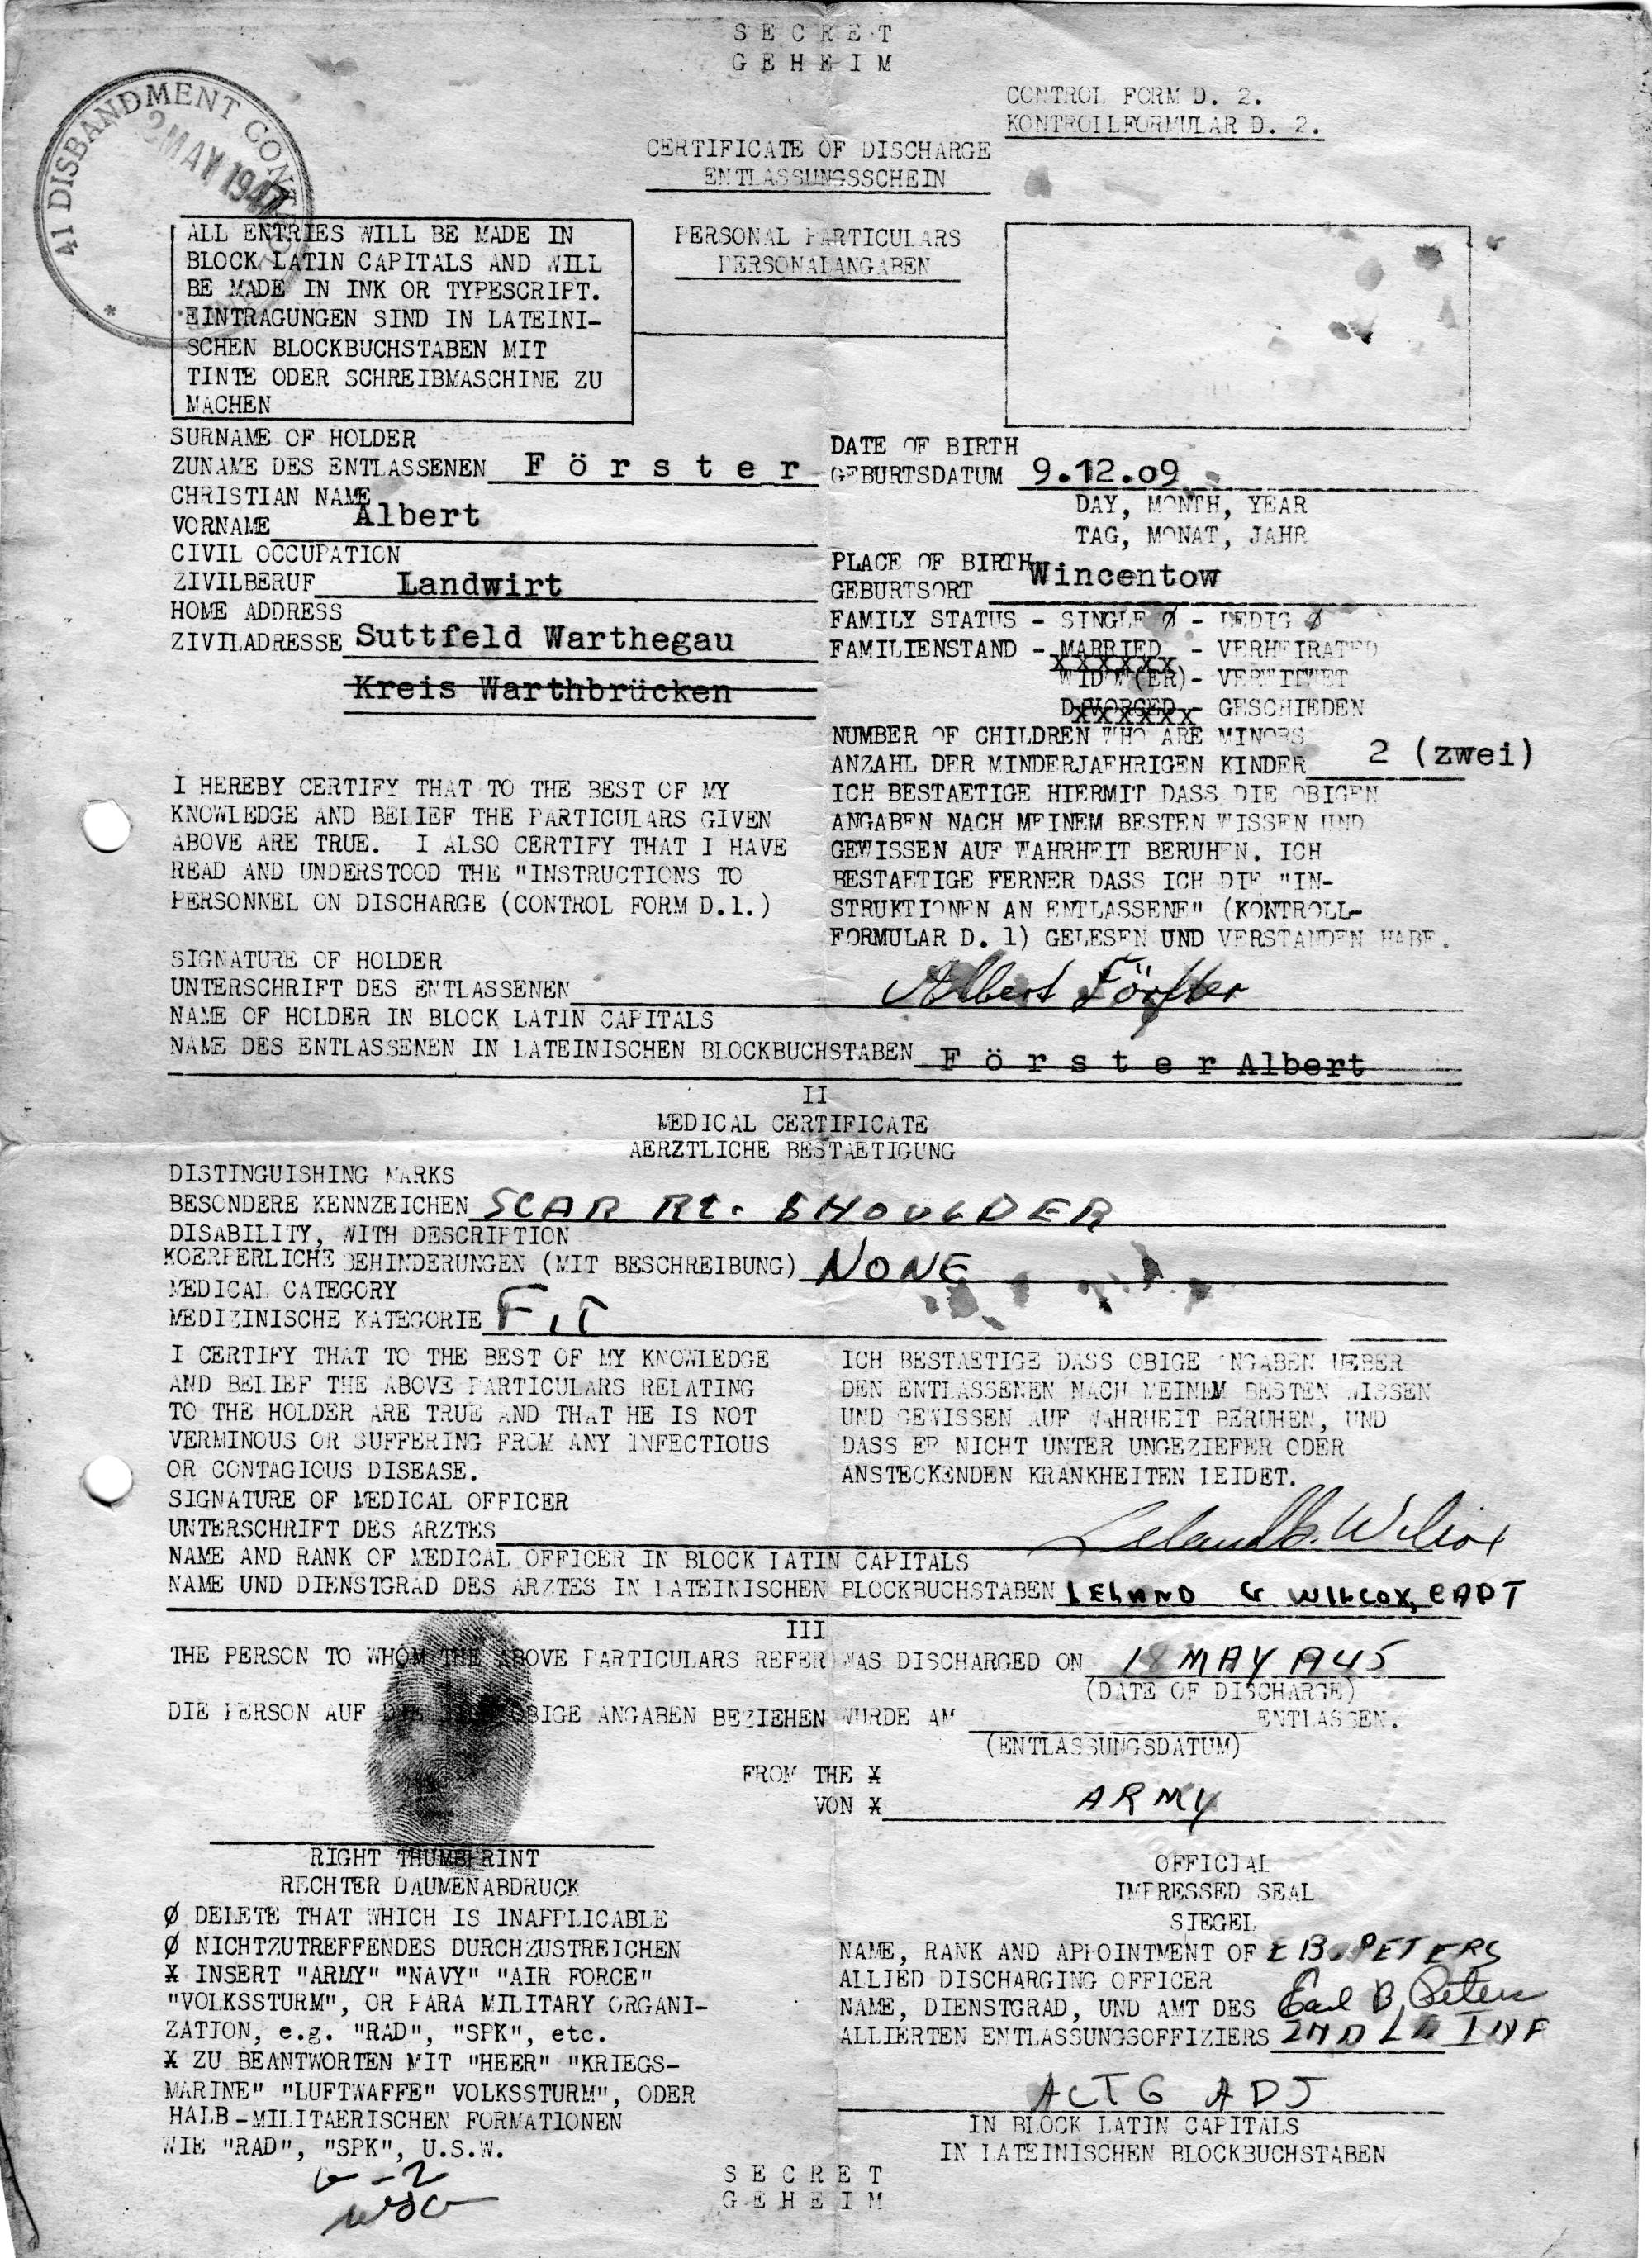 SECRET
GEHEIM
CONTROL FORM D. 2.
KONTROLLFORMULAR D. 2.
41 DISBANDMENT CONTROL
2 MAY 1947
CERTIFICATE OF DISCHARGE
ENTLASSUNGSSCHEIN
ALL ENTRIES WILL BE MADE IN
BLOCK LATIN CAPITALS AND WILL
BE MADE IN INK OR TYPESCRIPT.
EINTRAGUNGEN SIND IN LATEINI-
SCHEN BLOCKBUCHSTABEN MIT
TINTE ODER SCHREIBMASCHINE ZU
MACHEN
PERSONAL PARTICULARS
PERSONALANGABEN
SURNAME OF HOLDER
ZUNAME DES ENTLASSENEN Förster
CHRISTIAN NAME
VORNAME Albert
CIVIL OCCUPATION
ZIVILBERUF Landwirt
HOME ADDRESS
ZIVILADRESSE Suttfeld Warthegau
Kreis Warthbrücken
DATE OF BIRTH
GEBURTSDATUM 9.12.09
DAY, MONTH, YEAR
TAG, MONAT, JAHR
PLACE OF BIRTH
GEBURTSORT Wincentow
FAMILY STATUS - SINGLE Ø - LEDIG Ø
FAMILIENSTAND - MARRIED - VERHEIRATED
XXXXXX
WIDOW(ER)- VERWITWET
DIVORCED - GESCHIEDEN
XXXXXX
NUMBER OF CHILDREN WHO ARE MINORS
ANZAHL DER MINDERJAEHRIGEN KINDER 2 (zwei)
I HEREBY CERTIFY THAT TO THE BEST OF MY
KNOWLEDGE AND BELIEF THE PARTICULARS GIVEN
ABOVE ARE TRUE. I ALSO CERTIFY THAT I HAVE
READ AND UNDERSTOOD THE "INSTRUCTIONS TO
PERSONNEL ON DISCHARGE (CONTROL FORM D.1.)
ICH BESTAETIGE HIERMIT DASS DIE OBIGEN
ANGABEN NACH MEINEM BESTEN WISSEN UND
GEWISSEN AUF WAHRHEIT BERUHEN. ICH
BESTAETIGE FERNER DASS ICH DIE "IN-
STRUKTIONEN AN ENTLASSENE" (KONTROLL-
FORMULAR D. 1) GELESEN UND VERSTANDEN HABE.
SIGNATURE OF HOLDER
UNTERSCHRIFT DES ENTLASSENEN Albert Förster
NAME OF HOLDER IN BLOCK LATIN CAPITALS
NAME DES ENTLASSENEN IN LATEINISCHEN BLOCKBUCHSTABEN Förster Albert
II
MEDICAL CERTIFICATE
AERZTLICHE BESTAETIGUNG
DISTINGUISHING MARKS
BESONDERE KENNZEICHEN SCAR RT. SHOULDER
DISABILITY, WITH DESCRIPTION
KOERPERLICHE BEHINDERUNGEN (MIT BESCHREIBUNG) NONE
MEDICAL CATEGORY
MEDIZINISCHE KATEGORIE FIT
I CERTIFY THAT TO THE BEST OF MY KNOWLEDGE
AND BELIEF THE ABOVE PARTICULARS RELATING
TO THE HOLDER ARE TRUE AND THAT HE IS NOT
VERMINOUS OR SUFFERING FROM ANY INFECTIOUS
OR CONTAGIOUS DISEASE.
ICH BESTAETIGE DASS OBIGE ANGABEN UEBER
DEN ENTLASSENEN NACH MEINEM BESTEN WISSEN
UND GEWISSEN AUF WAHRHEIT BERUHEN, UND
DASS ER NICHT UNTER UNGEZIEFER ODER
ANSTECKENDEN KRANKHEITEN LEIDET.
SIGNATURE OF MEDICAL OFFICER
UNTERSCHRIFT DES ARZTES Leland G. Wilcox
NAME AND RANK OF MEDICAL OFFICER IN BLOCK LATIN CAPITALS
NAME UND DIENSTGRAD DES ARZTES IN LATEINISCHEN BLOCKBUCHSTABEN LELAND G WILCOX, CAPT
III
THE PERSON TO WHOM THE ABOVE PARTICULARS REFER WAS DISCHARGED ON 18 MAY 1945
(DATE OF DISCHARGE)
DIE PERSON AUF DIE SICH OBIGE ANGABEN BEZIEHEN WURDE AM ENTLASSEN.
(ENTLASSUNGSDATUM)
FROM THE X
VON X ARMY
RIGHT THUMBPRINT
RECHTER DAUMENABDRUCK
Ø DELETE THAT WHICH IS INAPPLICABLE
Ø NICHTZUTREFFENDES DURCHZUSTREICHEN
X INSERT "ARMY" "NAVY" "AIR FORCE"
"VOLKSSTURM", OR PARA MILITARY ORGANI-
ZATION, e.g. "RAD", "SPK", etc.
X ZU BEANTWORTEN MIT "HEER" "KRIEGS-
MARINE" "LUFTWAFFE" VOLKSSTURM", ODER
HALB-MILITAERISCHEN FORMATIONEN
WIE "RAD", "SPK", U.S.W.
OFFICIAL
IMPRESSED SEAL
SIEGEL
NAME, RANK AND APPOINTMENT OF E B. PETERS
ALLIED DISCHARGING OFFICER Earl B. Peters
NAME, DIENSTGRAD, UND AMT DES
ALLIIERTEN ENTLASSUNGSOFFIZIERS 2ND LT INF
ACTG ADJ
IN BLOCK LATIN CAPITALS
IN LATEINISCHEN BLOCKBUCHSTABEN
G-2
SECRET
GEHEIM